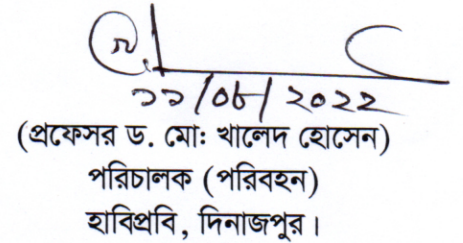 ১১/০৮/২০২২
(প্রফেসর ড. মো: খালেদ হোসেন)
পরিচালক (পরিবহন)
হাবিপ্রবি, দিনাজপুর।